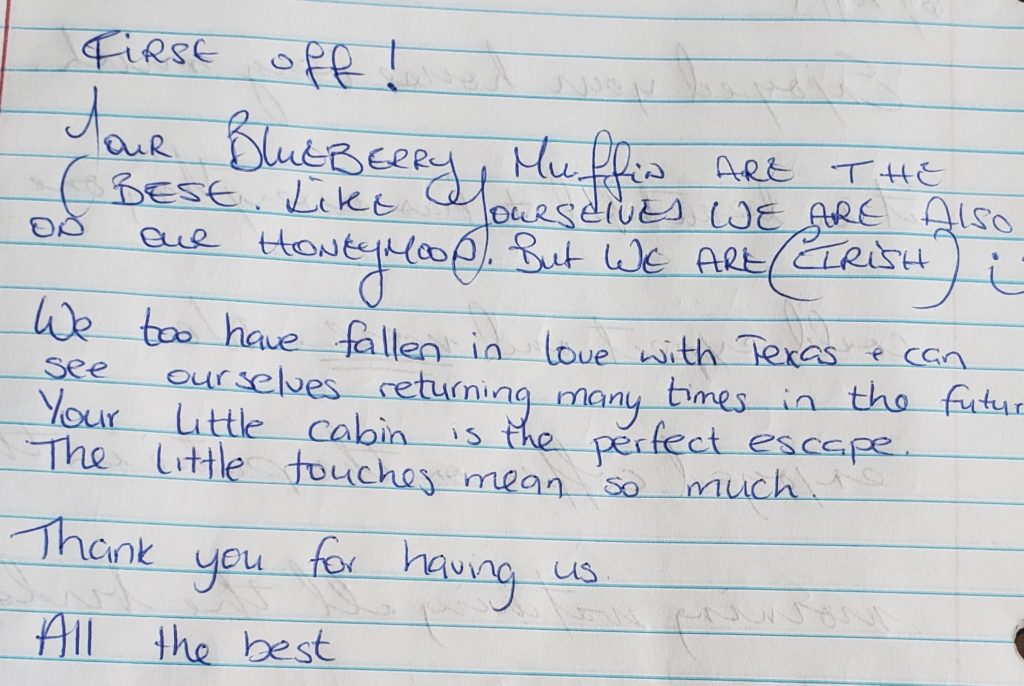 FIRST OFF!
YOUR BLUEBERRY MUFFIN ARE THE
BEST. LIKE YOURSELVES WE ARE ALSO
ON OUR HONEYMOON. BUT WE ARE (IRISH) :
We too have fallen in love with Texas & can
see ourselves returning many times in the futur
Your little cabin is the perfect escape.
The little touches mean so much.
Thank you for having us.
All the best